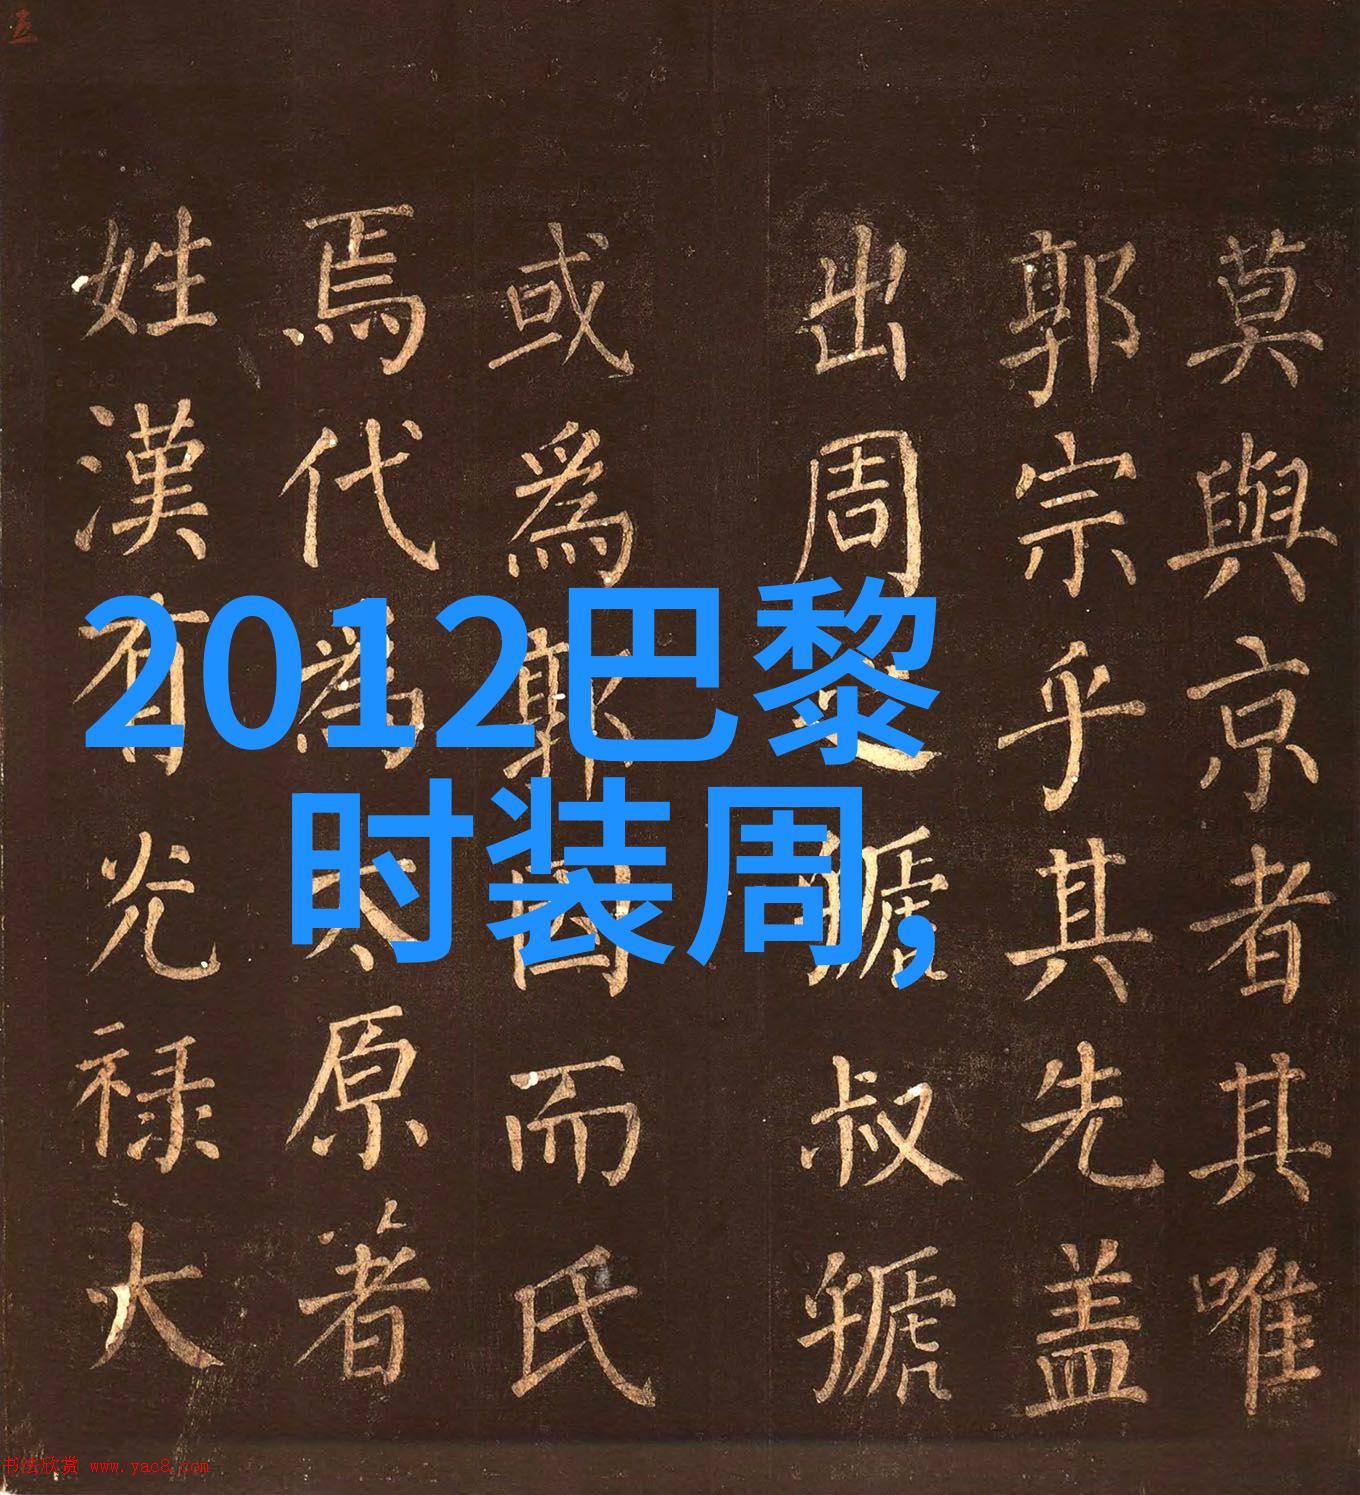 莫與京者其唯
郭宗乎其先盖
出周之虢叔虢
或為郭因而氏
焉代為太原著
姓漢有光禄大
2012巴黎
时装周,
书法欣赏 www.yac8.com